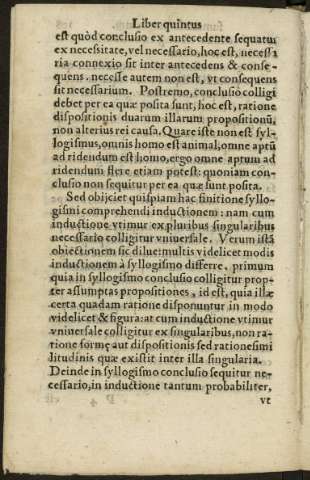 Liber quintus
est quòd conclusio ex antecedente sequatur
ex necesitate, vel necessario, hoc est, necessa
ria connexio sit inter antecedens & conse-
quens. necesse autem non est, vt consequens
sit necessarium. Postremo, conclusio colligi
debet per ea quæ posita sunt, hoc est, ratione
dispositionis duarum illarum propositionũ,
non alterius rei causa. Quare iste non est syl-
logismus, omnis homo est animal, omne aptũ
ad ridendum est homo, ergo omne aptum ad
ridendum flere etiam potest: quoniam con-
clusio non sequitur per ea quæ sunt posita.
Sed obijciet quispiam hac finitione syllo-
gismi comprehendi inductionem: nam cum
inductione vtimur ex pluribus singularibus
necessario colligitur vniuersale. Verum istã
obiectionem sic dilue: multis videlicet modis
inductionem à syllogismo differre. primum
quia in syllogismo conclusio colligitur prop-
ter assumptas propositiones, id est, quia illæ
certa quadam ratione disponuntur in modo
videlicet & figura: at cum inductione vtimur
vniuersale colligitur ex singularibus, non ra-
tione formę aut dispositionis sed ratione simi
litudinis quæ existit inter illa singularia.
Deinde in syllogismo conclusio sequitur ne-
cessario, in inductione tantum probabiliter,
vt